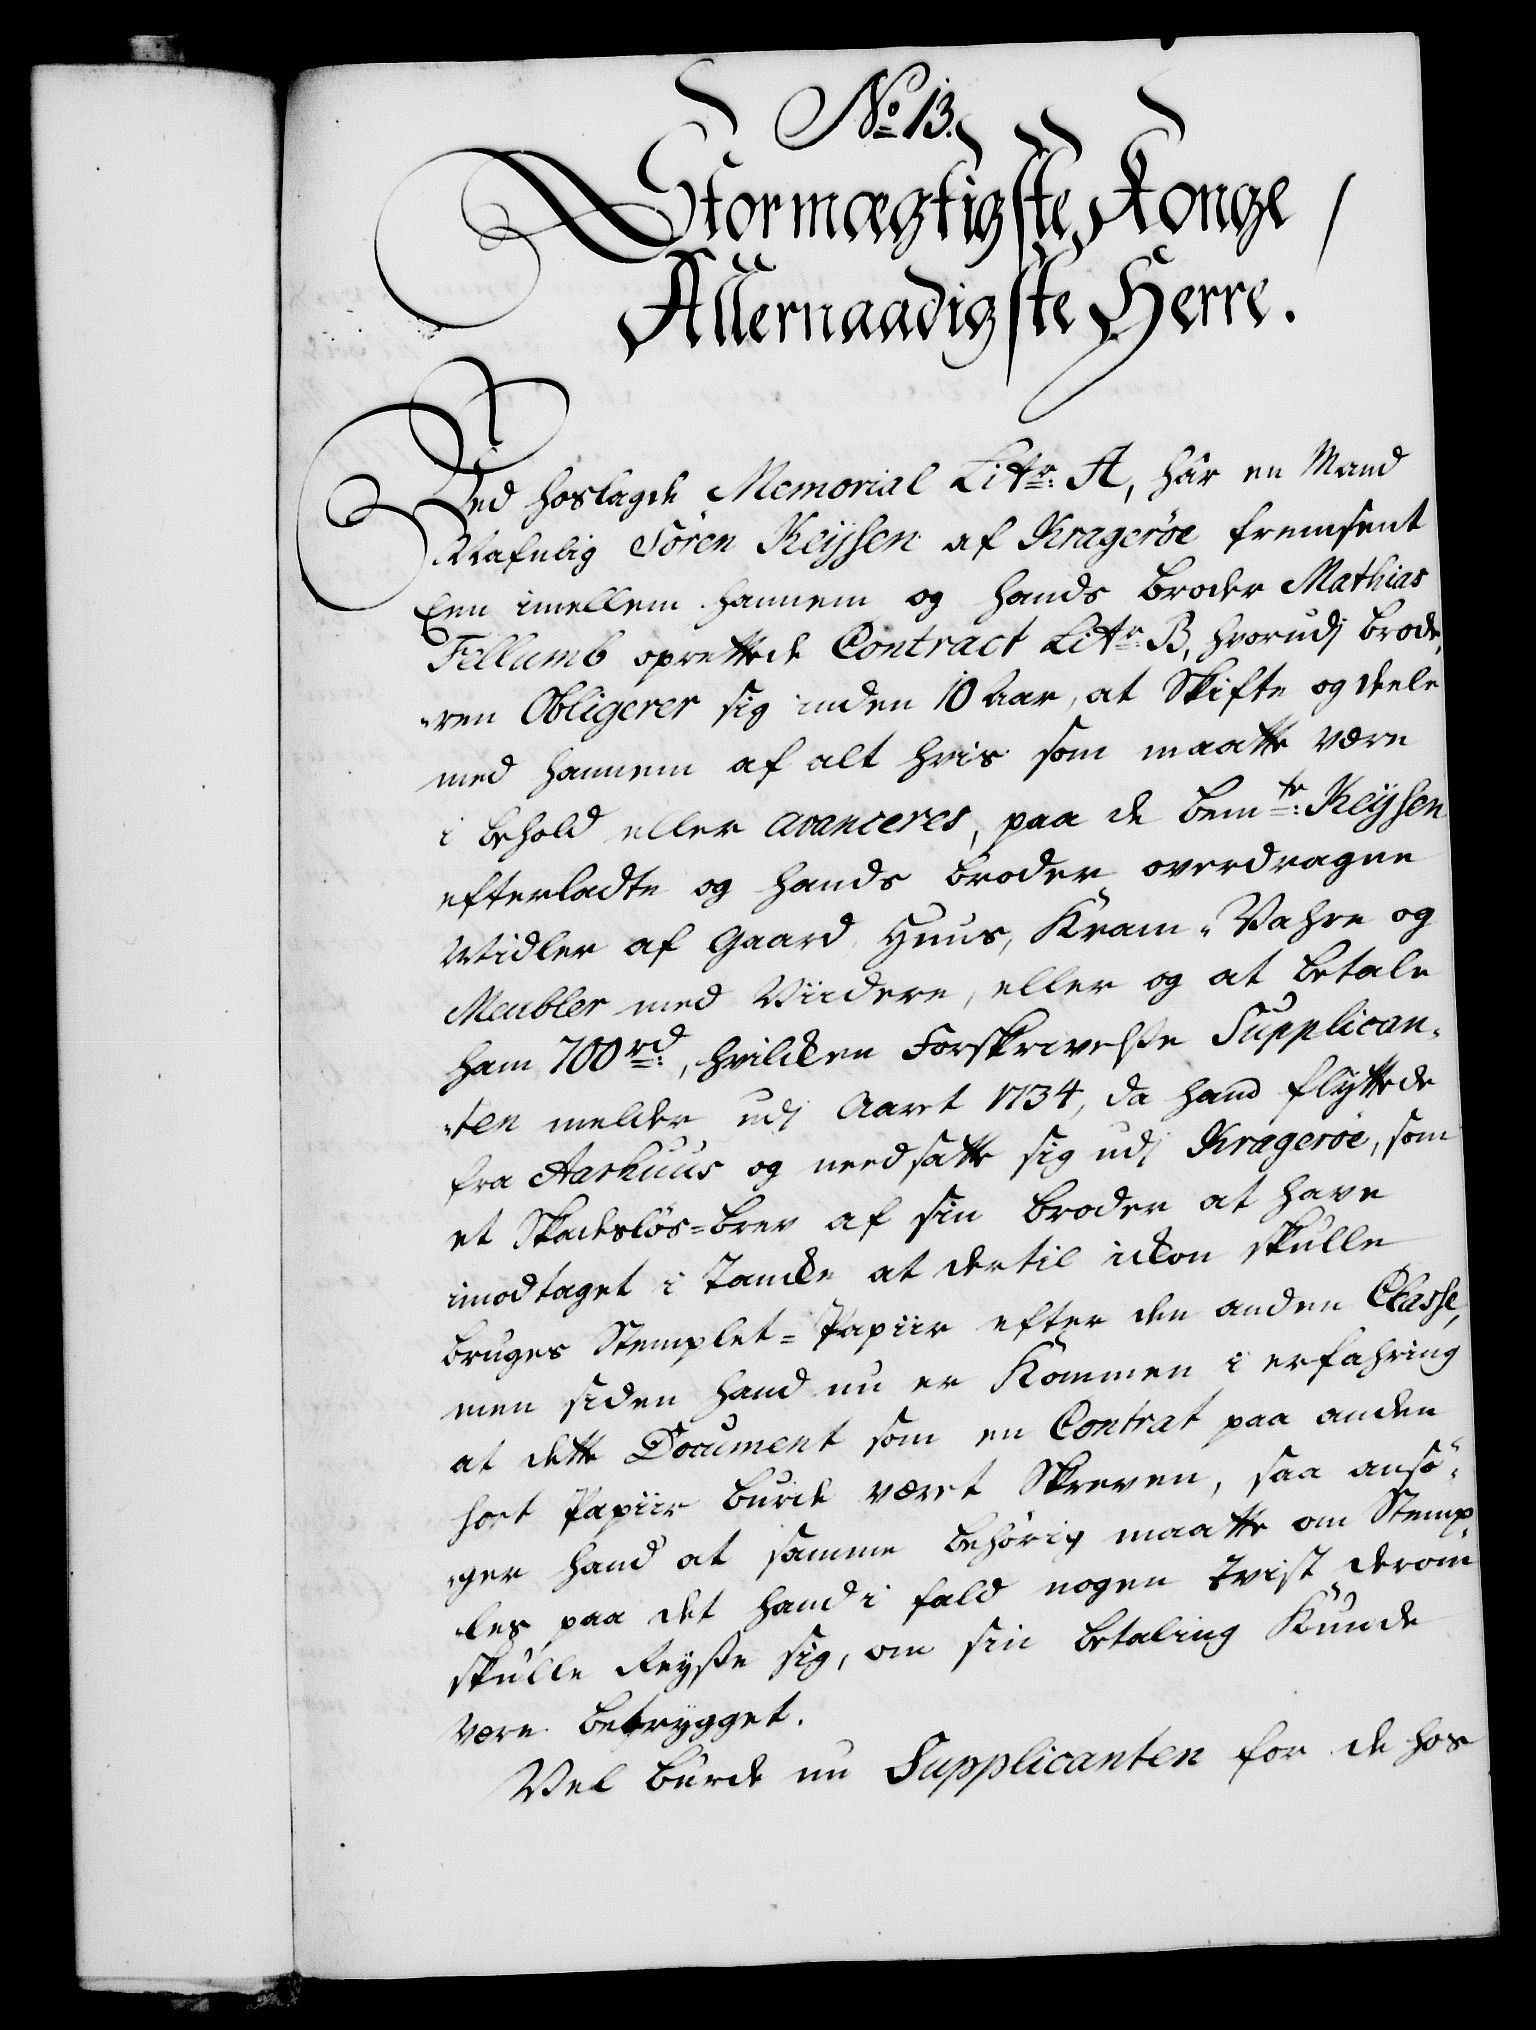 No 13.
Stormægtigste Konge /
Allernaadigste Herre.
Ved hoslagde Memorial Litr: A, har en Mand
Nafnlig Sören Keÿsen af Kragerøe fremsent
Een imellem hannem og hands Broder Mathias
Fellumb oprettede Contract Litr: B, hvorudj Brode,
„ren Obligerer sig inden 10 Aar, at Skifte og deele
med hannem af alt hvis som maatte være
i behold eller avanceres, paa de bemte: Keÿsen
efterladte og hands Broder overdragne
Midler af Gaard, Huus, Kram-Vahre og
Meubler med Viidere, eller og at betale
ham 700 rd:, hvilcken Forskrivelsse Supplican-
„ten melder udj Aaret 1734, da hand flyttede
fra Aarhuus og needsatte sig udj Kragerøe, som
et Skadesløs=Brev af sin Broder at have
imodtaget i Tancke at dertil ickon skulle
bruges Stemplet=Papiir efter den anden Classe,
men siden hand nu er Kommen i erfahring
at dette Document som en Contrat paa anden
sort Papiir burde været Skreven, saa ansö-
„ger hand at samme behörig maatte om Stemp,
„les paa det hand i fald nogen tvist derom
skulle Reÿsse sig, om sin betaling Kunde
være betrygget.
Vel burde nu Supplicanten for de hos